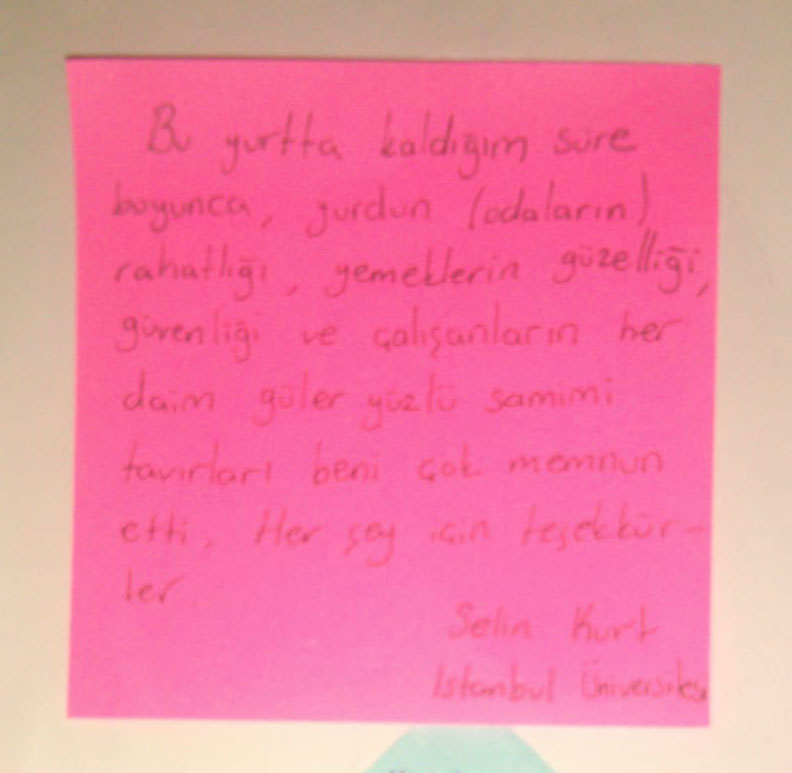 Bu yurtta kaldığım süre
boyunca, yurdun (odaların)
rahatlığı, yemeklerin güzelliği,
güvenliği ve çalışanların her
daim güler yüzlü samimi
tavırları beni çok memnun
etti. Her şey için teşekkür-
ler
Selin Kurt
İstanbul Üniversitesi